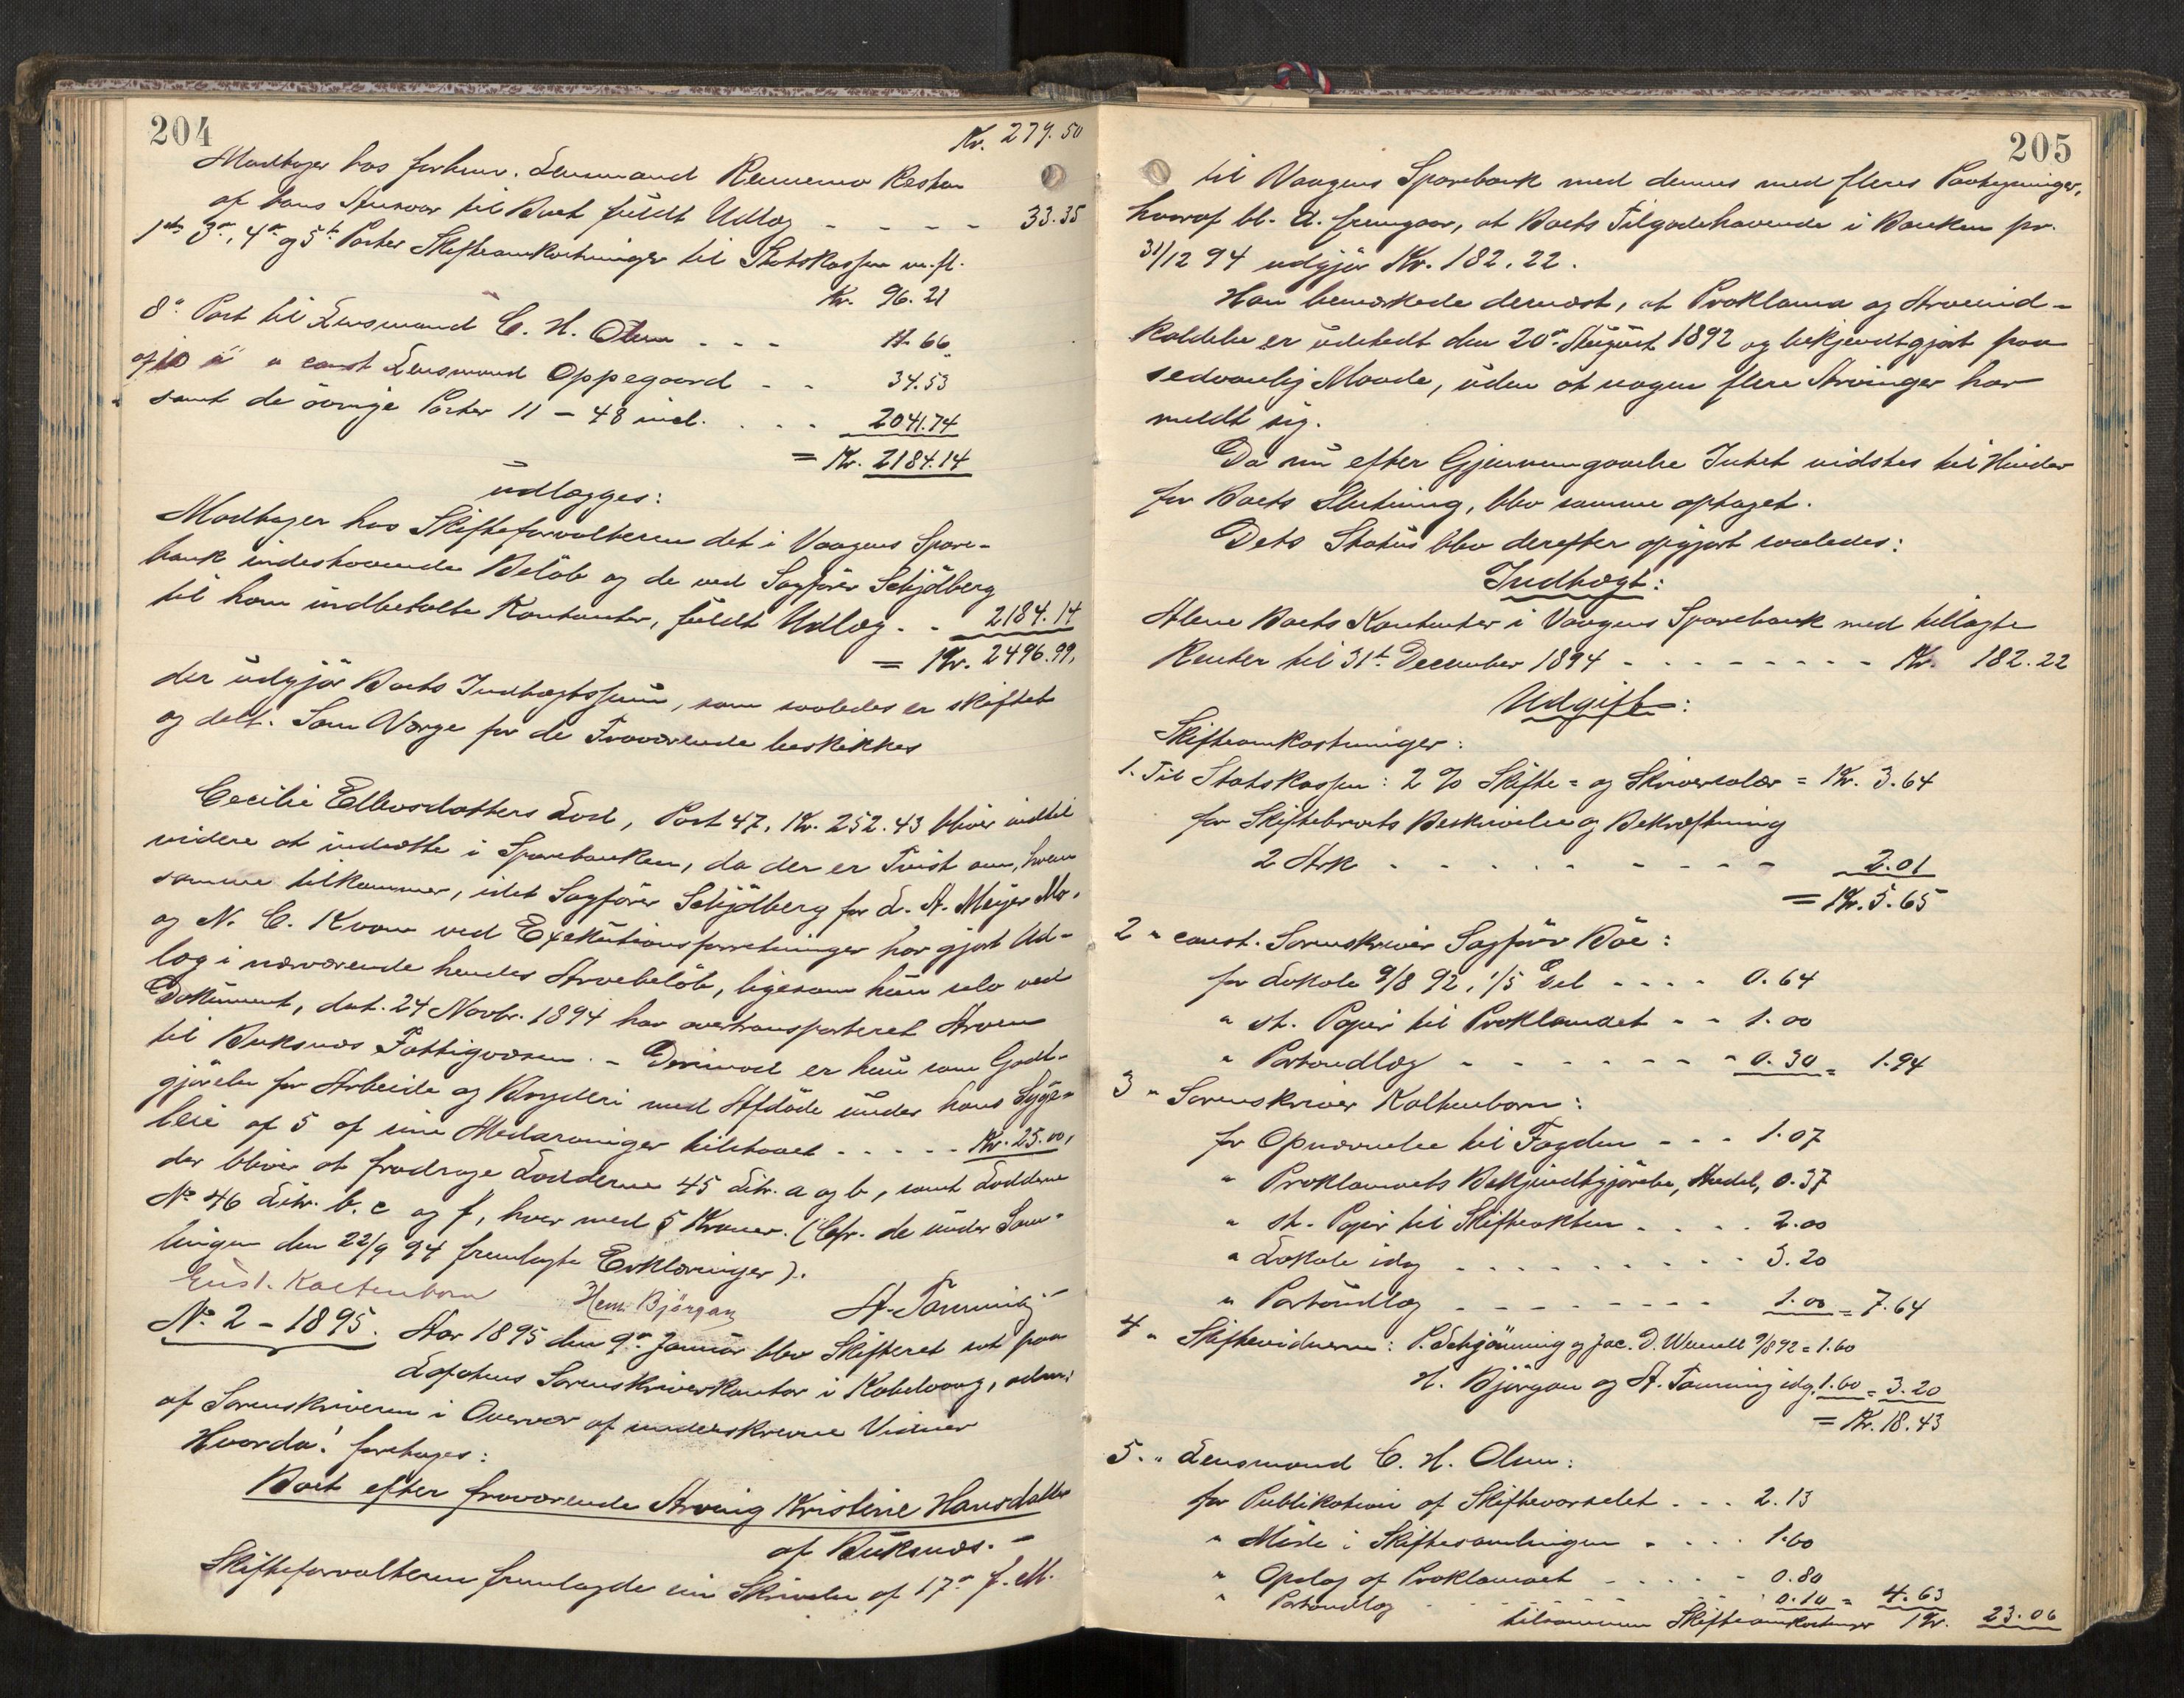 204
Kr. 279.50
Modtager hos forhenv. Lensmand Rennemo Resten
af hans Ansvar til Boet fuldt Udlæg - - - - 33.35
1ste 3die, 4de og 5te Poster Skifteomkostninger til Statskassen m. fl.
Kr. 96.21
8de Post til Lensmand C. H. Olsen - - - 11.66
af 10 " " const Lensmand Oppegaard - - 34.53
samt de øvrige Poster 11 - 48 incl. . . . 2041.74
= Kr. 2184.14
udlægges:
Modtager hos Skifteforvalteren det i Vaagens Spare-
bank indestaaende Beløb og de ved Sagfører Schjölberg
til ham indbetalte Kontanter, fuldt Udlæg - - 2184.14
= Kr. 2496.99,
der udgjør Boets Indtægtssum, som saaledes er skiftet
og delt. Som Værge for de Fraværende beskikkes
Cecilie Ellevsdatters Lod, Post 47, Kr. 252.43 bliver indtil
videre at indsætte i Sparebanken, da der er Tvist om, hvem
samme tilkommer, idet Sagfører Schjölberg for L. A. Meyer Mo,
og N. C. Kvam ved Exekutionsforretninger har gjort Ud-
læg i nærværende hendes Arvebeløb, ligesom hun selv ved
Dokument, dat. 24 Novbr. 1894 har overtransporteret Arven
til Buksnæs Fattigvæsen. - Derimod er hun som Godt-
gjørelse for Arbeide og Bryderi med Afdøde under hans Syge-
leie af 5 af sine Medarvinger tilstaaet - - - - - Kr. 25.00,
der bliver at fradrage Lodderne 45 Litr. a og b, samt Lodderne
No 46 Litr. b. c og f, hver med 5 Kroner. (Cfr. de under Sam-
lingen den 22/9 94 fremlagte Erklæringer).
Eilst. Kaltenborn Hem. Bjørgan A. Tønning
No 2 - 1895. Aar 1895 den 9de Januar blev Skifteret sat paa
Lofotens Sorenskriverkontor i Kabelvaag, adm:
af Sorenskriveren i Overvær af underskrevne Vidner
Hvorda! foretages:
Boet efter fraværende Arving Kristine Hansdatter
af Buksnæs. -
Skifteforvalteren fremlagde sin Skrivelse af 17de f. M.
205
til Vaagens Sparebank med dennes med fleres Paategninger,
hvoraf bl. A. fremgaar, at Boets Tilgodehavende i Banken pr.
31/12 94 udgjør Kr. 182.22.
Han bemærkede dernæst, at Proklama og Arveind-
kaldelse er udstedt den 20de August 1892 og bekjendtgjort paa
sedvanlig Maade, uden at nogen flere Arvinger har
meldt sig.
Da nu efter Gjennemgaaelse Intet vidstes til Hinder
for Boets Slutning, blev samme optaget.
Dets Status blev derefter opgjort saaledes:
Indtægt:
Alene Boets Kontanter i Vaagens Sparebank med tillagte
Renter til 31te December 1894 - - - - - - - - Kr. 182.22
Udgift:
Skifteomkostninger:
1. Til Statskassen: 2 % Skifte- og Skriversalær = Kr. 3.64
for Skiftebrevets Beskrivelse og Bekræftning
2 Ark - - - - - - - - - 2.01
= Kr. 5.65
2 " const. Sorenskriver Sagfører Bøe:
for Lokale 9/8 92, 1/5 Del - - - - 0.64
" st. Papir til Proklamaet - - 1.00
" Portoudlæg - - - - - - - 0.30 = 1.94
3 " Sorenskriver Kaltenborn:
for Opnævnelse til Fogden - - - 1.07
" Proklamaets Bekjendtgjørelse, Andel, 0.37
" st. Papir til Skifteakten . . . . 2.00
" Lokale idag . . . . . . . . . 3.20
" Portoudlæg - - - - - - - - 1.00 = 7.64
4 " Skiftevidnerne: P. Schjønning og Jac. D. Wennell 9/8 92 = 1.60
H. Bjørgan og A. Tønning idag 1.60 = 3.20
= Kr. 18.43
5. " Lensmand C. H. Olsen:
for Publikation af Skiftevarselet . . . 2.13
" Møde i Skiftesamlingen . . . . 1.60
" Opslag af Proklamaet - - - - - 0.80
" Portoudlæg - - - - - - - 0.10 = 4.63
tilsammen Skifteomkostninger Kr. 23.06